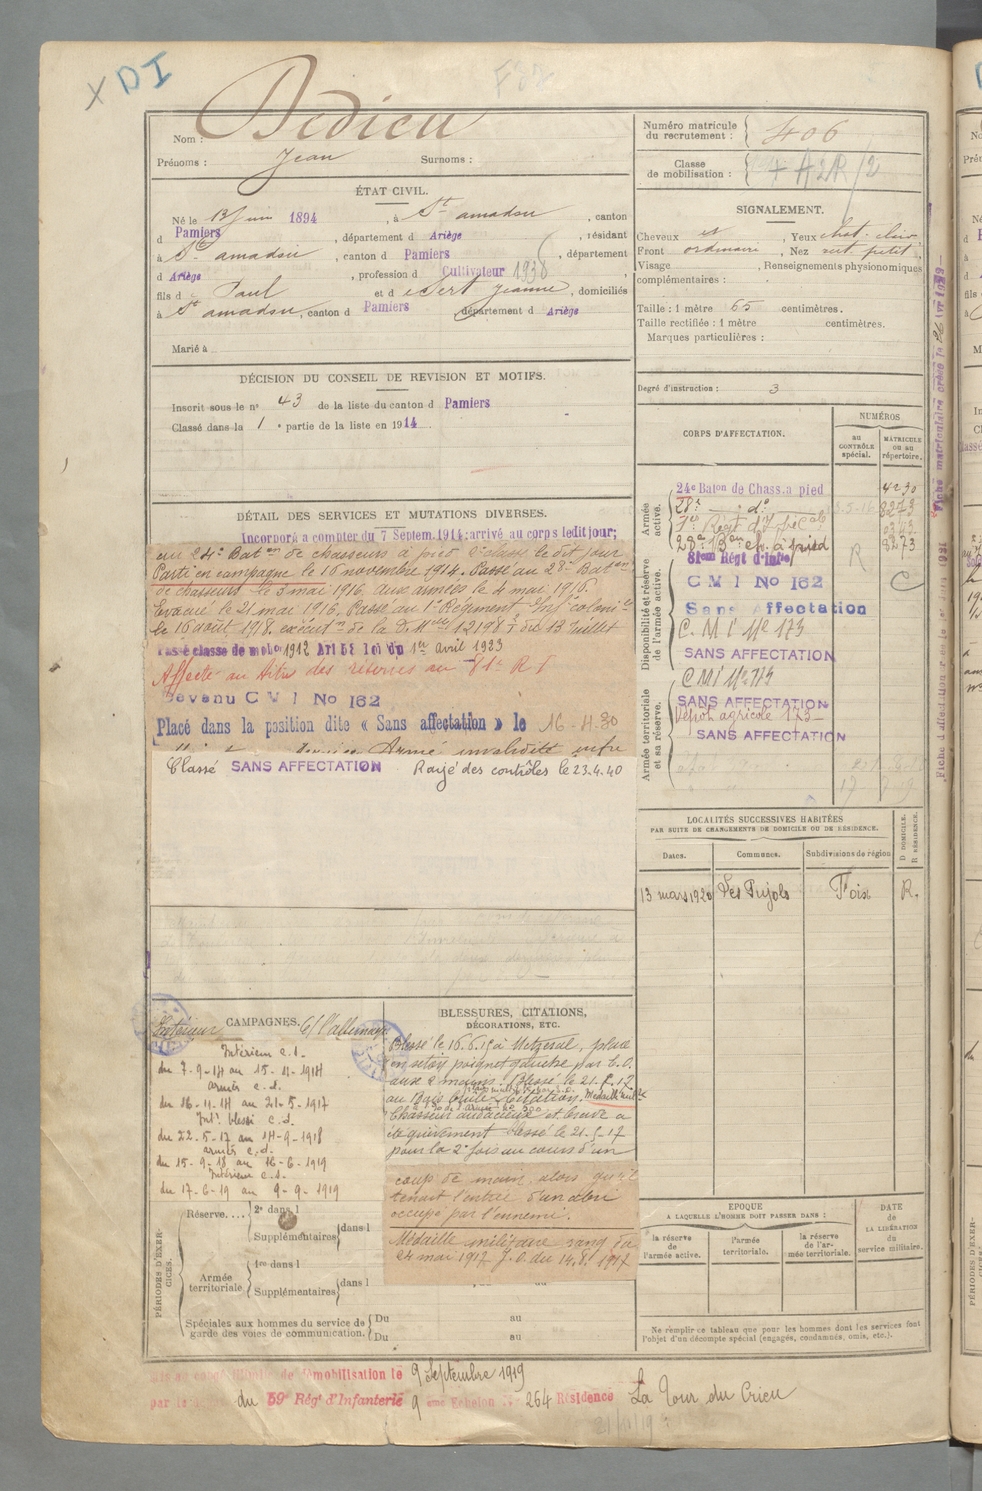 X DI
Nom : Dedieu
Prénoms : Jean Surnoms :
ÉTAT CIVIL.
Né le 13 Juin 1894, à St amadou, canton
d Pamiers, département d Ariège, résidant
à St amadou, canton d Pamiers, département
d Ariège, profession d Cultivateur 1938
fils d e Paul et d e Sert Jeanne, domiciliés
à St amadou, canton d Pamiers département d Ariège
Marié à
DÉCISION DU CONSEIL DE REVISION ET MOTIFS.
Inscrit sous le n° 43 de la liste du canton d Pamiers
Classé dans la 1e partie de la liste en 1914
DÉTAIL DES SERVICES ET MUTATIONS DIVERSES.
Incorporé à compter du 7 Septem. 1914: arrivé au corps ledit jour;
au 24e Baton de chasseurs à pied 2e classe le dit jour
Parti en campagne le 16 novembre 1914. Passé au 28e Baton
de chasseurs le 5 mai 1916 aux armées le 4 mai 1916.
Evacué le 21 mai 1916. Passé au 1er Régiment Inf colonle
le 16 août 1918. exécutn de la D. Mlle 12198 du 13 Juillet
Passé classe de mobon 1912 Art 58 Loi du 1er avril 1923
Affecté au titre des réserves au 81e R I
Devenu C M I No 162
Placé dans la position dite « Sans affectation » le 16-4-30
Armé invalidité
Classé SANS AFFECTATION Rayé des contrôles le 23.4.40
CAMPAGNES. C/ l'allemagne
Intérieur
Intérieur c.s.
du 7-9-14 au 15-11-1914
armées c.d.
du 16-11-14 au 21-5-1917
Intr blessé c.d.
du 22-5-17 au 14-9-1918
armées c.d.
du 15-9-18 au 16-6-1919
Intérieur c.s.
du 17-6-19 au 9-9-1919
BLESSURES, CITATIONS,
DÉCORATIONS, ETC.
Blessé le 16.6.15 à Metzeral, plaie
en séton poignet gauche par E.O.
aux 2 mains. Blessé le 21.5.17
Citation. Médaille milre
"Chasseur audacieux et brave a
été grièvement blessé le 21-5-17
pour la 2e fois au cours d'un
coup de main, alors qu'il
tenait l'entrée d'un abri
occupé par l'ennemi.
Médaille militaire rang du
24 mai 1917 J.O. du 14.8.1917
PÉRIODES D'EXERCICES.
Réserve.... 2e dans l
Supplémentaires dans l
Armée territoriale 1re dans l
Supplémentaires dans l
Spéciales aux hommes du service de garde des voies de communication. Du au
Du au
Numéro matricule du recrutement : 406
Classe de mobilisation :
SIGNALEMENT.
Cheveux, Yeux chat. clair,
Front ordinaire, Nez rect. petit,
Visage, Renseignements physionomiques
complémentaires :
Taille : 1 mètre 65 centimètres.
Taille rectifiée : 1 mètre centimètres.
Marques particulières :
Degré d'instruction : 3
CORPS D'AFFECTATION.
NUMÉROS
au CONTRÔLE spécial.
MATRICULE ou au répertoire.
Armée active.
24e Baton de Chass. à pied 4230
28e do 8273
1er Régt d'Ife Cole
28e Bon ch. à pied 8273
Disponibilité et réserve de l'armée active.
81eme Régt d'Infie R
C M I No 162 C
Sans Affectation
C. M I No 173
SANS AFFECTATION
Armée territoriale et sa réserve.
CMI No 173
SANS AFFECTATION
Dépôt agricole 173
SANS AFFECTATION
LOCALITÉS SUCCESSIVES HABITÉES
PAR SUITE DE CHANGEMENTS DE DOMICILE OU DE RÉSIDENCE.
Dates. Communes. Subdivisions de région D DOMICILE. R RÉSIDENCE.
13 mars 1920 Les Pujols Foix R.
EPOQUE
A LAQUELLE L'HOMME DOIT PASSER DANS :
la réserve de l'armée active.
l'armée territoriale.
la réserve de l'armée territoriale.
DATE de LA LIBÉRATION du service militaire.
Ne remplir ce tableau que pour les hommes dont les services font
l'objet d'un décompte spécial (engagés, condamnés, omis, etc.).
Fiche matriculaire créée le
démobilisation le 9 Septembre 1919
du 59e Régt d'Infanterie 9 eme Echelon No 264 Résidence La Tour du Crieu